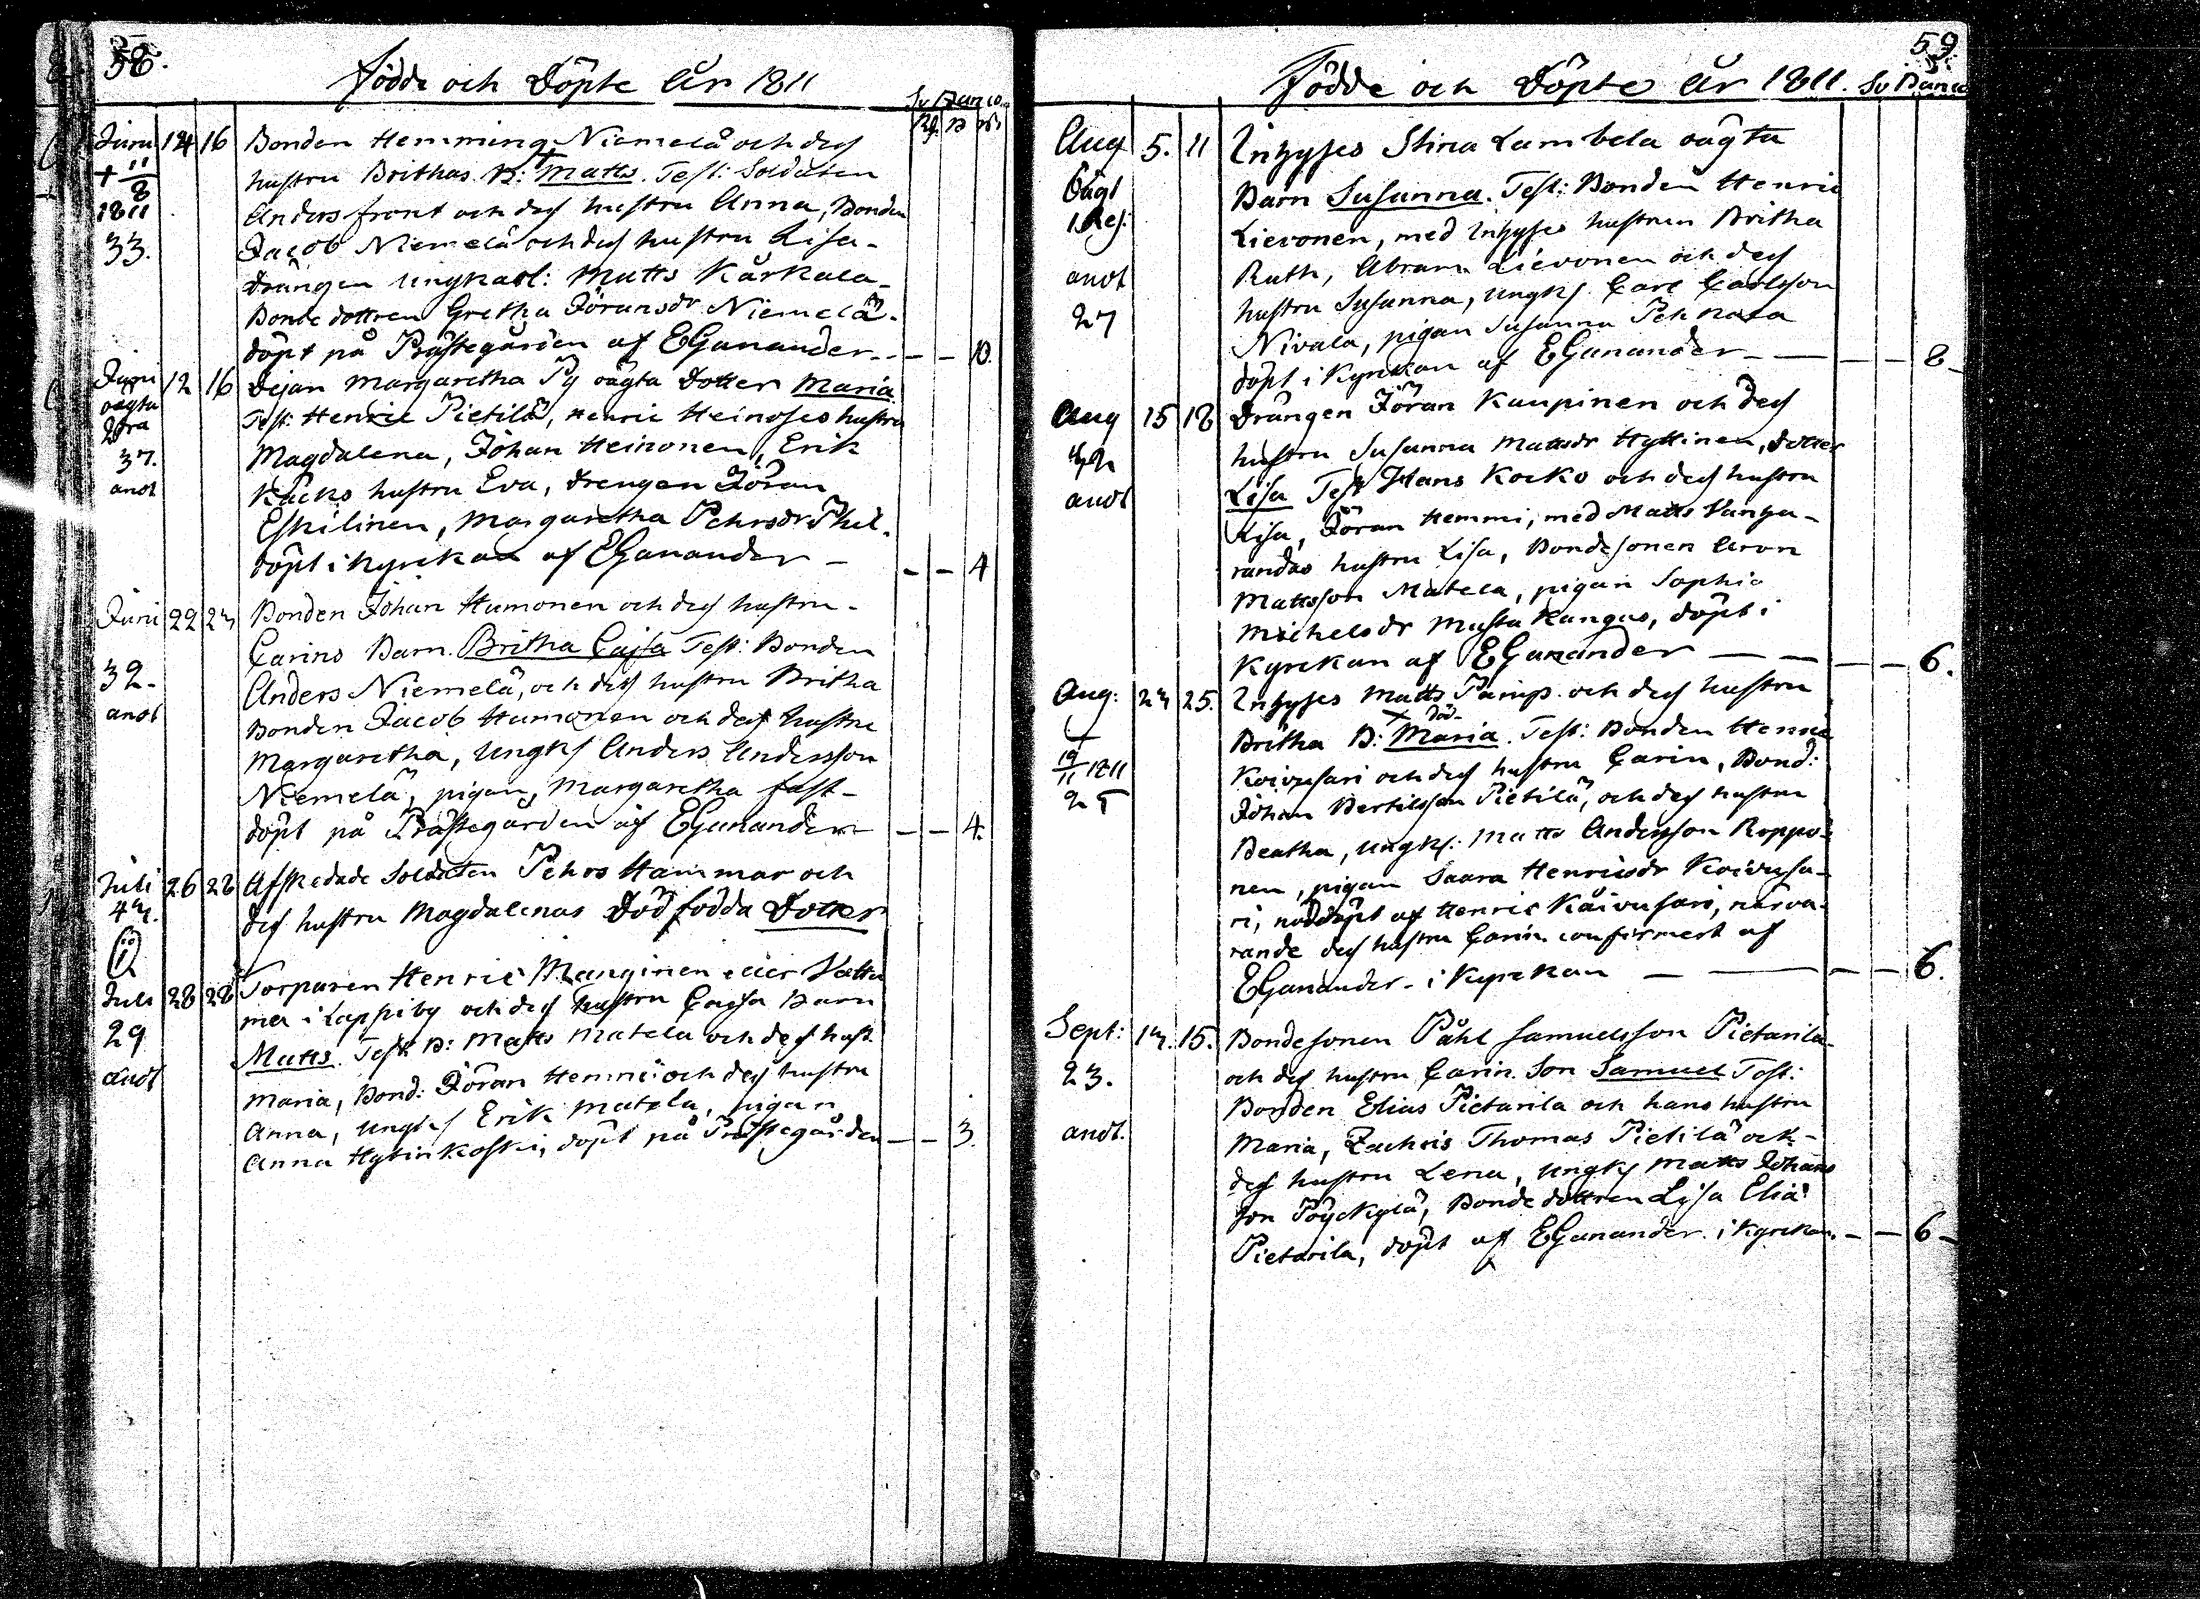 58.
Födde och Döpte År 1811
Sv Banco
Rd. B rst
Juni 14 16 Bonden Hemming Niemelä och dess
+ 11/8 hustru Brithas B: Matts. Test: Soldaten
1811 Anders front och dess hustru Anna, Bonden
33. Jacob Niemelä och dess hustru Lisa
Drängen Ungkarl: Matts Karkala
Bonde dottren Gretha Jöransdr Niemelä
döpt på Prästegården af EGanander - - 10.
Juni 12 16 Dejan Margaretha Py oägta Dotter Maria
oägta Test: Henric Pietilä, Henric Heinoses hustru
2dra Magdalena, Johan Heinonen, Erik
37. Käcks hustru Eva, Drengen Jöran
andt Eskilinen, Margaretha Pehrsdr Phil.
döpt i Kyrckan af EGanander - - - 4
Juni 22 23 Bonden Johan Humonen och dess hustru
Carins Barn Britha Cajsa Test: Bonden
32. Anders Niemelä, och dess hustru Britha
andt Bonden Jacob Humonen och dess hustru
Margaretha, Ungks Anders Andersson
Niemelä, pigan, Margaretha fast-
döpt på Prästegården af EGanander - - 4.
Juli 26 28 Afskedade Soldaten Pehrs Hammar och
47. dess hustru Magdalenas Död födda Dotter
Juli 28 28 Torparen Henric Manginen eller
mer i Lappiby och dess hustru Cagsa Barn
29 Matts. Test B: Matts Matela och dess hust.
andt Maria, Bond: Jöran Hemmi och dess hustru
Anna, Ungks Erik Matela, pigan
Anna Hytinkoski, döpt på Prästegården - - 3.
59.
Födde och Döpte År 1811. Sv Banco
Aug 5. 11 Inhyses Stina Lambela oägta
Oägt Barn Susanna. Test: Bonden Henric
1 Res: Lievonen, med Inhyses hustrun Britha
andt Ruth, Abram Lievonen och dess
27 hustru Susanna, Ungks Carl Carlsson
Nivala, pigan Susanna
döpt i Kyrckan af EGanander - - - 8
Aug 15 18 Drängen Jöran Kaupinen och dess
42 hustru Susanna Mattsdr Hyttinen, dotter
andt Lisa Test Hans Kocko och dess hustru
Lisa, Jöran Hemmi, med Matts Vanga-
randas hustru Lisa, Bondesonen Aron
Mattsson Matela, pigan Sophia
Michelsdr Musta Kangas, döpt i
Kyrckan af EGanander - - - 6.
Aug: 23 25. Inhyses Matts Pamp. och dess hustru
död
Britha B: Maria. Test: Bonden Henric
19/11 1811 Koivusari och dess hustru Carin, Bond:
25 Johan Bertilsson Pietilä, och dess hustru
Beatha, Ungks: Matts Andersson Roppo-
nen, pigan Saara Henricsdr Koivusa-
ri, nöddöpt af Henric Koivusari, närva-
rande dess hustru Carin confirmert af
EGanander - i Kyrckan - - - 6.
Sept: 13. 15. Bondesonen Påhl Samuelsson Pietarila
23. och dess hustru Carin. Son Samuel Test:
Bonden Elias Pietarila och hans hustru
andt. Maria, Zachris Thomas Pietilä och
dess hustru Lena, Ungks Matts Johans
son Pöyckylä, Bonde dottren Lisa Elia
Pietarila, döpt af EGanander i Kyrckan. - - 6 -